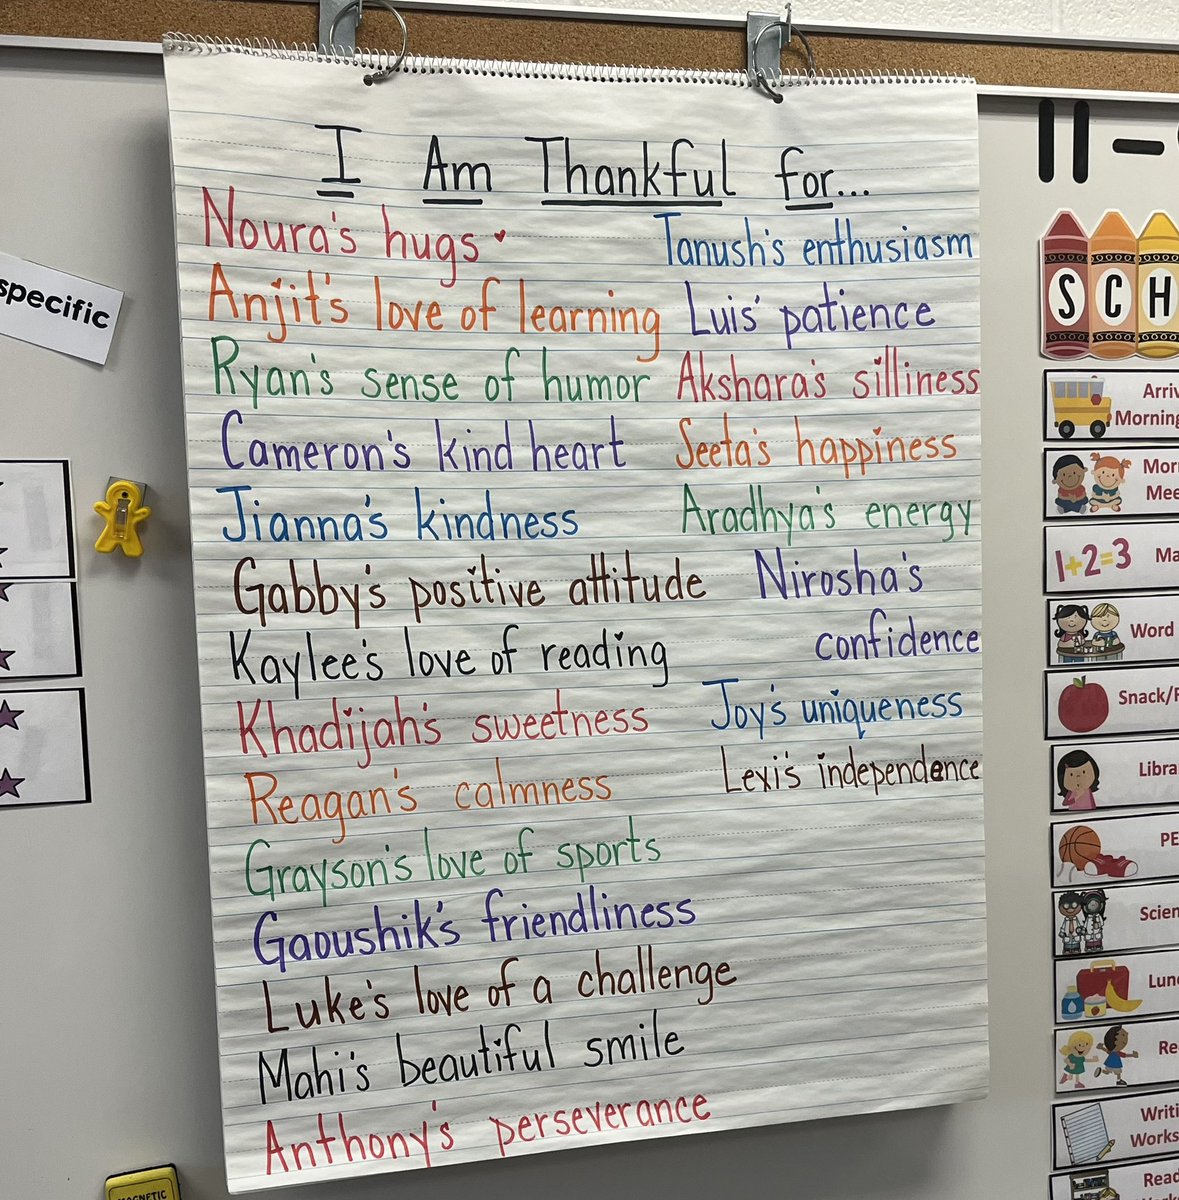 I Am Thankful for...
Noura's hugs
Anjit's love of learning
Ryan's sense of humor
Cameron's kind heart
Jianna's kindness
Gabby's positive attitude
Kaylee's love of reading
Khadijah's sweetness
Reagan's calmness
Grayson's love of sports
Gaoushik's friendliness
Luke's love of a challenge
Mahi's beautiful smile
Anthony's perseverance
Tanush's enthusiasm
Luis' patience
Akshara's silliness
Seeta's happiness
Aradhya's energy
Nirosha's
confidence
Joy's uniqueness
Lexi's independence
specific
MAGNETIC
11-
SCH
1+2=3
Word
Snack/
PE